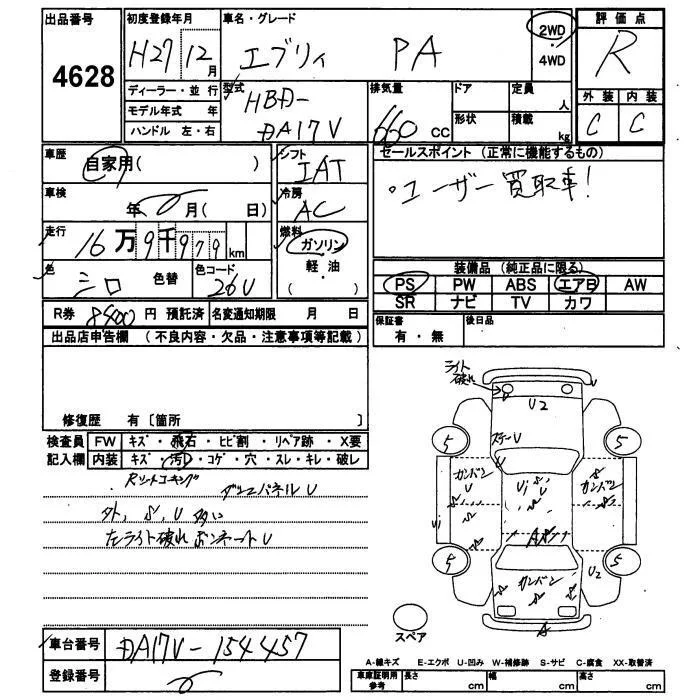 出品番号
4628
初度登録年月
H27 12月
車名・グレード
エブリィ PA
2WD
・
4WD
評価点
R
外装 内装
C C
ディーラー・並行
モデル年式 年
ハンドル 左・右
型式
HBD-
DA17V
排気量
660 CC
ドア
形状
定員
人
積載
kg
車歴
自家用( )
車検
年 月( 日)
走行
16万9千979km
色
シロ
色替
色コード
26U
シフト
IAT
冷房
AC
燃料
ガソリン
軽・油
( )
セールスポイント (正常に機能するもの)
・ユーザー買取車!
装備品 (純正品に限る)
PS PW ABS エアB AW
SR ナビ TV カワ
保証書
有・無
後日品
R券 8400円 預託済
名変通知期限 月 日
出品店申告欄 (不良内容・欠品・注意事項等記載)
修復歴 有〔箇所 〕
検査員 FW キズ・飛石・ヒビ割・リペア跡・X要
記入欄 内装 キズ・汚レ・コゲ・穴・スレ・キレ・破レ
ダッシュパネルU
外, S, U 多い
左ライト破れ ボンネットU
車台番号
DA17V-154457
登録番号
ライト
破れ
U2
U
5
5
5
5
カンバン
カンバン
カンバン
Ui
U
Ui
U2
A
スペア
A-線キズ E-エクボ U-凹み W-補修跡 S-サビ C-腐食 XX-取替済
車庫証明用
参考
長さ cm
幅 cm
高さ cm